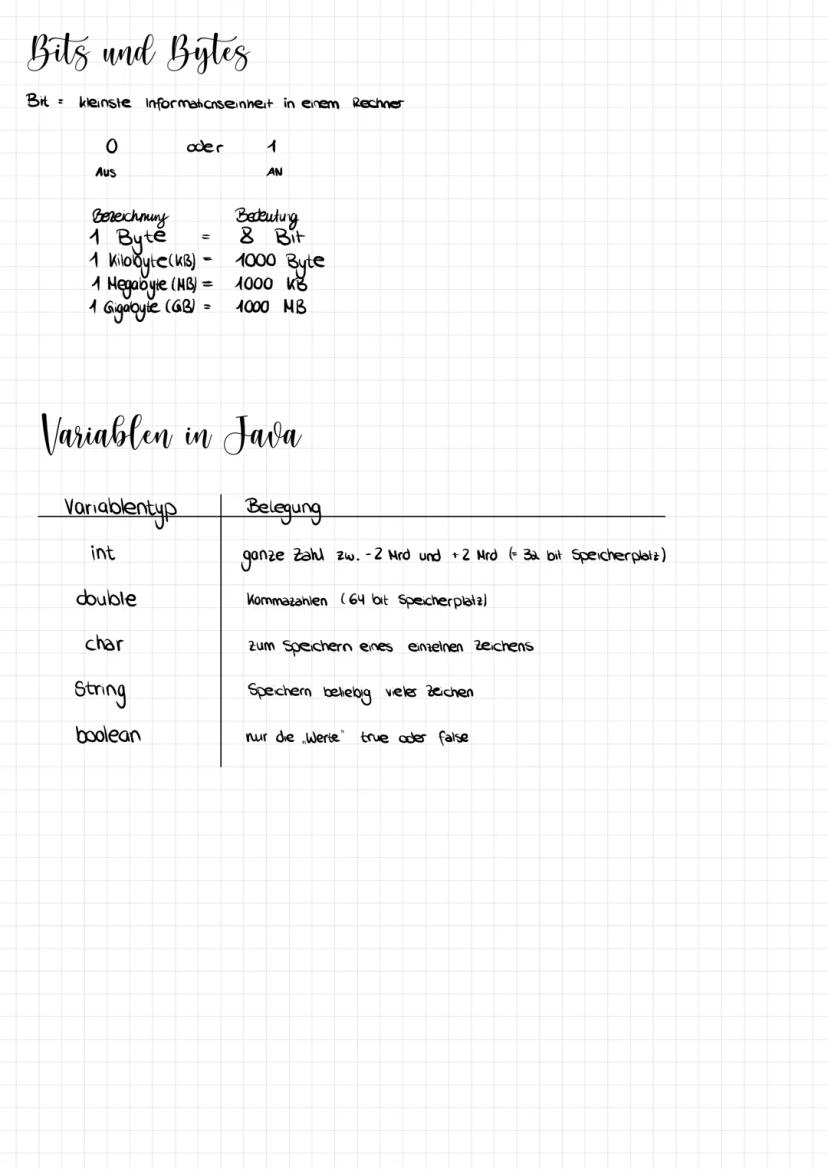 Bits und Bytes
Bit = kleinste Informationseinheit in einem Rechner
0 oder 1
AUS AN
Bezeichnung Bedeutung
1 Byte = 8 Bit
1 Kilobyte (KB) = 1000 Byte
1 Megabyte (MB) = 1000 KB
1 Gigabyte (GB) = 1000 MB
Variablen in Java
Variablentyp Belegung
int ganze Zahl zw. -2 Mrd und +2 Mrd (= 32 bit Speicherplatz)
double Kommazahlen (64 bit Speicherplatz)
char zum Speichern eines einzelnen Zeichens
String Speichern beliebig vieler Zeichen
boolean nur die „Werte" true oder false